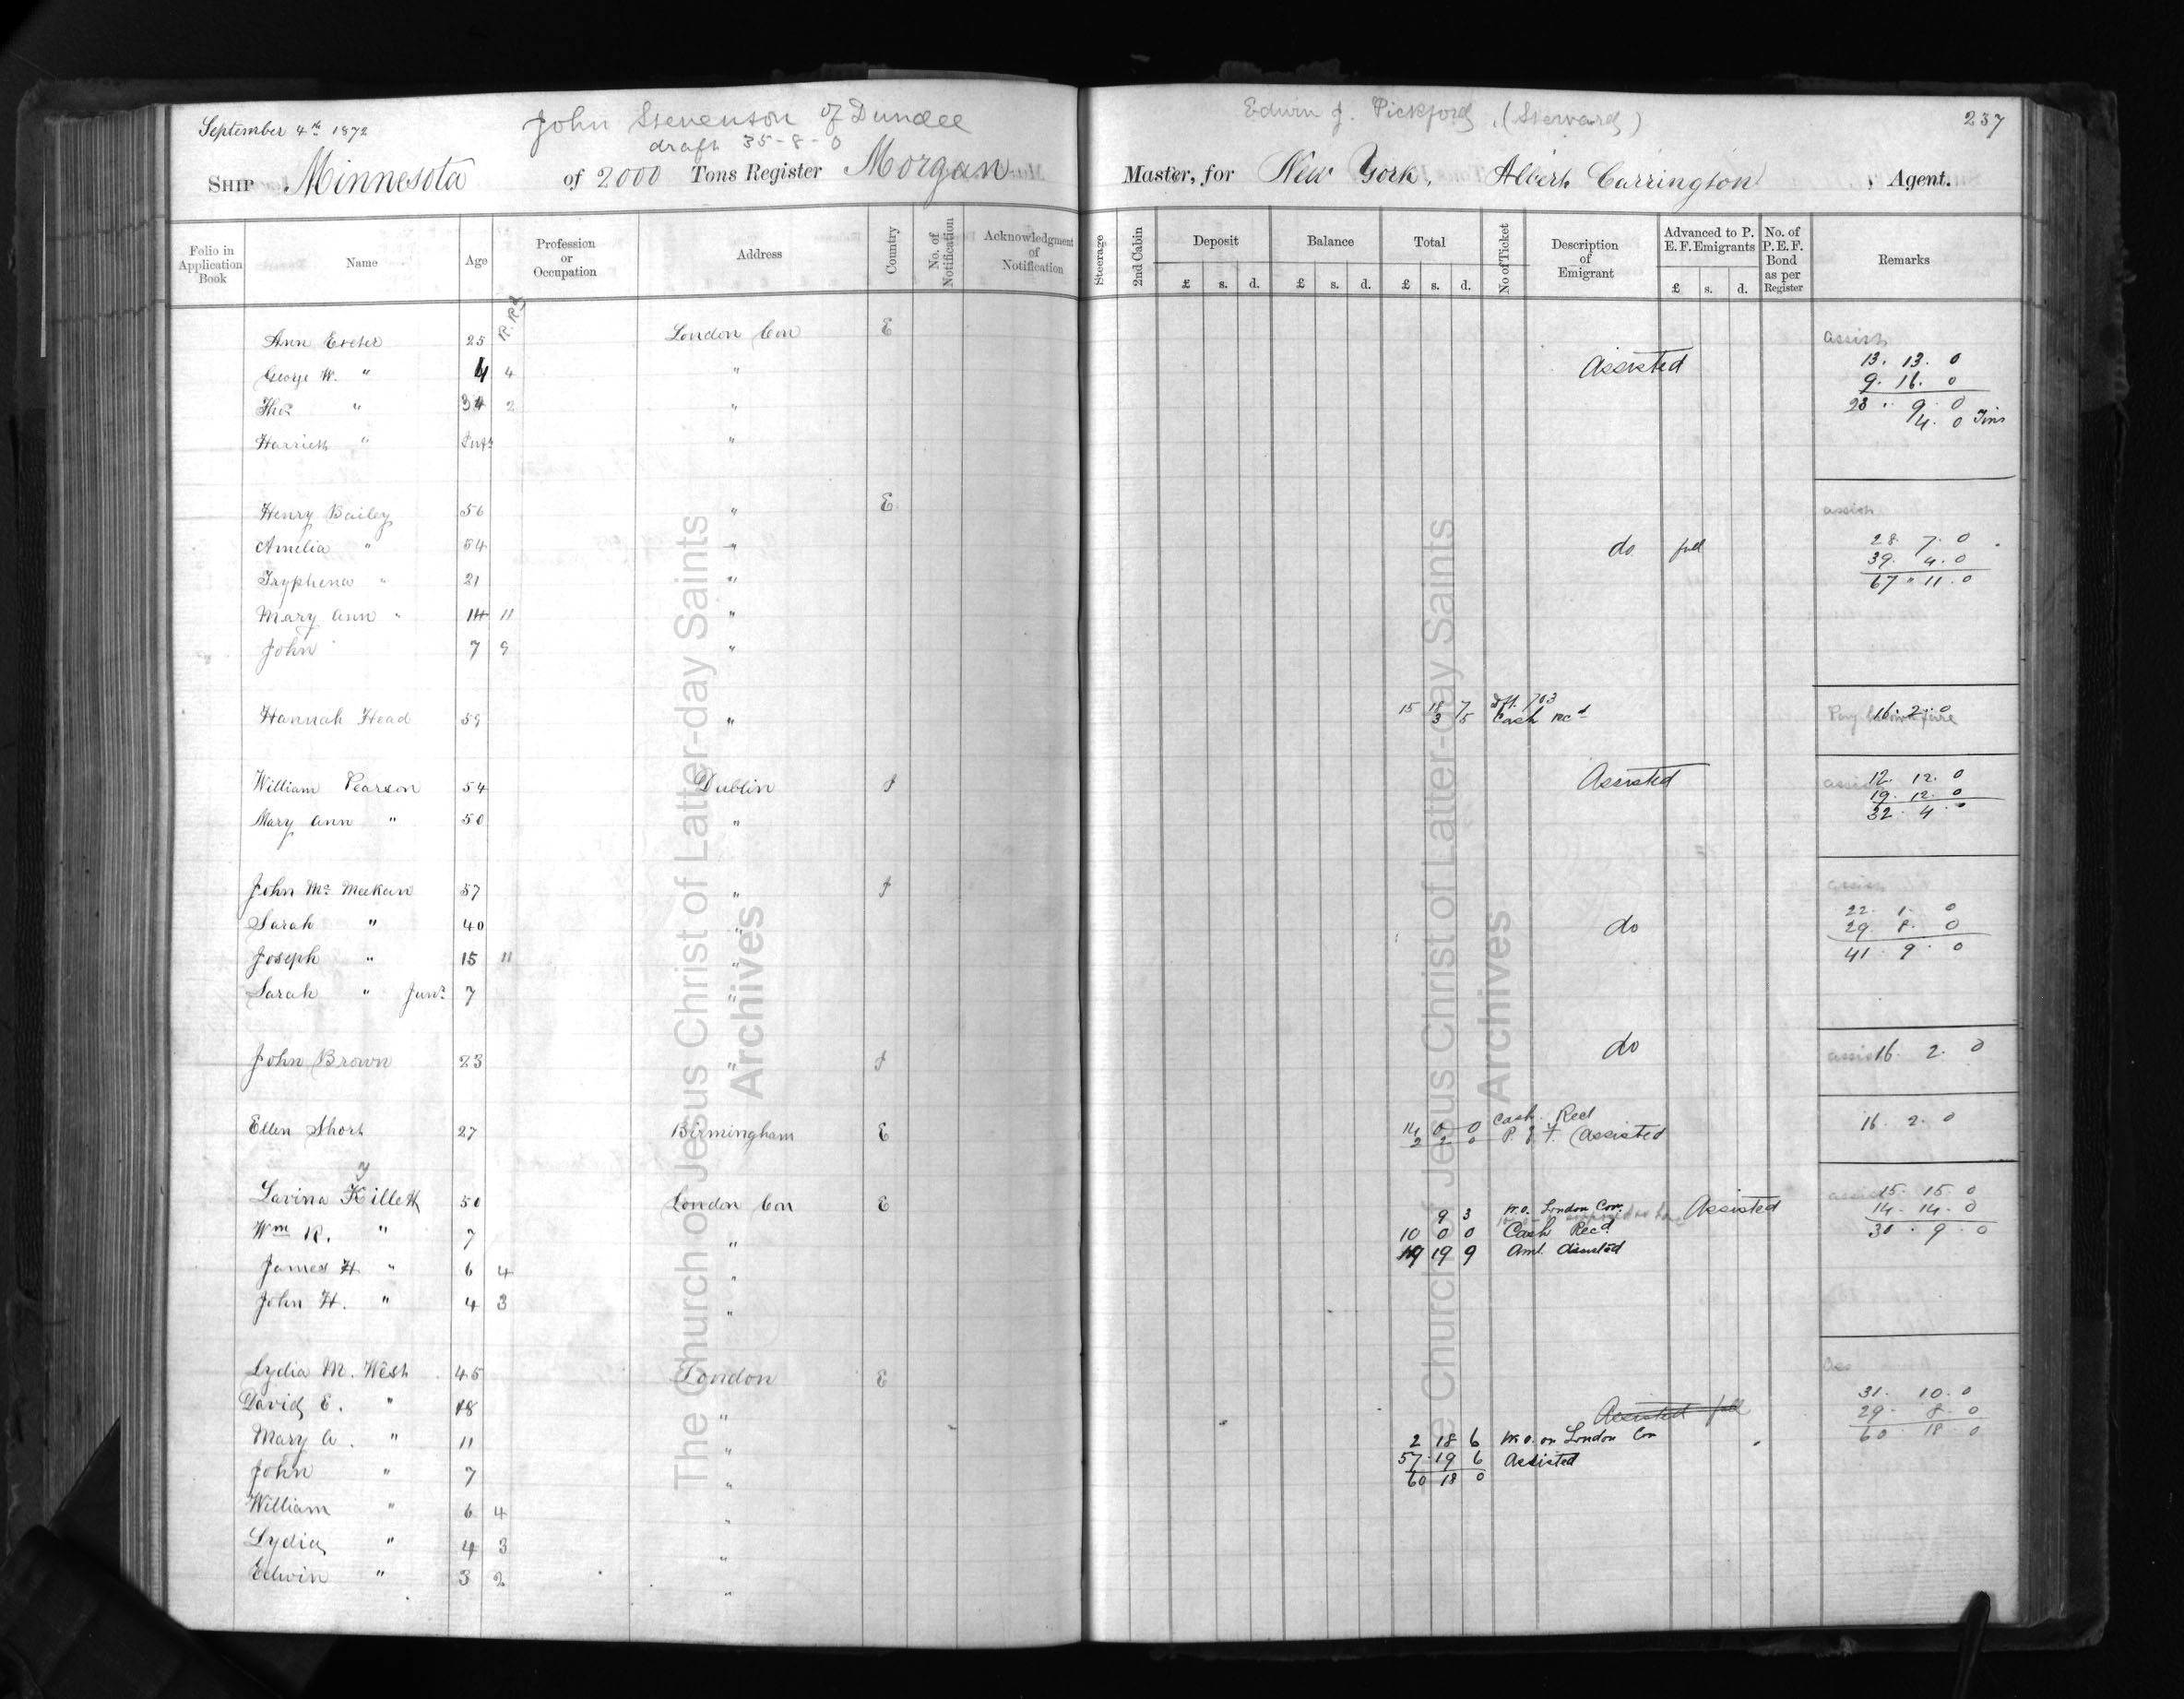 September 4th 1872 John Stevenson of Dundee Edwin J. Pickford, (Steward) 237
draft 35-8-0
Ship Minnesota of 2000 Tons Register Morgan Master, for New York, Albert Carrington, Agent.
Folio in Application Book Name Age Profession or Occupation Address Country No. of Notification Acknowledgment of Notification Steerage 2nd Cabin Deposit Balance Total No of Ticket Description of Emigrant Advanced to P. E. F. Emigrants No. of P.E.F. Bond as per Register Remarks
£ s. d. £ s. d. £ s. d. £ s. d.
R. Rd
Ann Exeter 25 London Con E assist
George W. " 4 4 " Assisted 13. 13. 0
9. 16. 0
Thos " 34 2 " 23 . 9. 0
4. 0 Tins
Harriett " Inft "
Henry Bailey 56 " E assist
Amelia " 54 " do full 28. 7. 0
39. 4. 0
Tryphena " 21 " 67 " 11. 0
Mary Ann " 14 11 "
John 7 9 "
15 18 7 Dft. 703
Hannah Head 59 " 3 5 Cash recd 16. 2. 0
William Pearson 54 Dublin I Assisted assist 12. 12. 0
19. 12. 0
32 4. 0
Mary Ann " 50 "
John Mc Meekan 57 " I assist
22. 1. 0
Sarah " 40 " do 29. 8. 0
41. 9. 0
Joseph " 15 11 "
Sarah " Junr 7 "
John Brown 23 " I do assist 16. 2. 0
Ellen Short 27 Birmingham E 14 0 0 Cash. Recd 16. 2. 0
2 2 0 P. E. F. (Assisted
J
Lavina Killett 50 London Con E assist 15. 15. 0
9 3 W.O. London Con. Assisted 14. 14. 0
Wm R. " 7 " 10 0 0 Cash Recd. 30 . 9. 0
19 19 9 Amt. Assisted
James H " 6 4 "
John H. " 4 3 "
Lydia M. West 45 London E Ass
31. 10. 0
David E. " 18 " Assisted full 29. 8. 0
60 18 0
Mary A. " 11 " 2 18 6 W.O. on London Con
John " 7 " 57 19 6 Assisted
60 18 0
William " 6 4 "
Lydia " 4 3 "
Edwin " 3 2 "
The Church of Jesus Christ of Latter-day Saints
Archives
The Church of Jesus Christ of Latter-day Saints
Archives